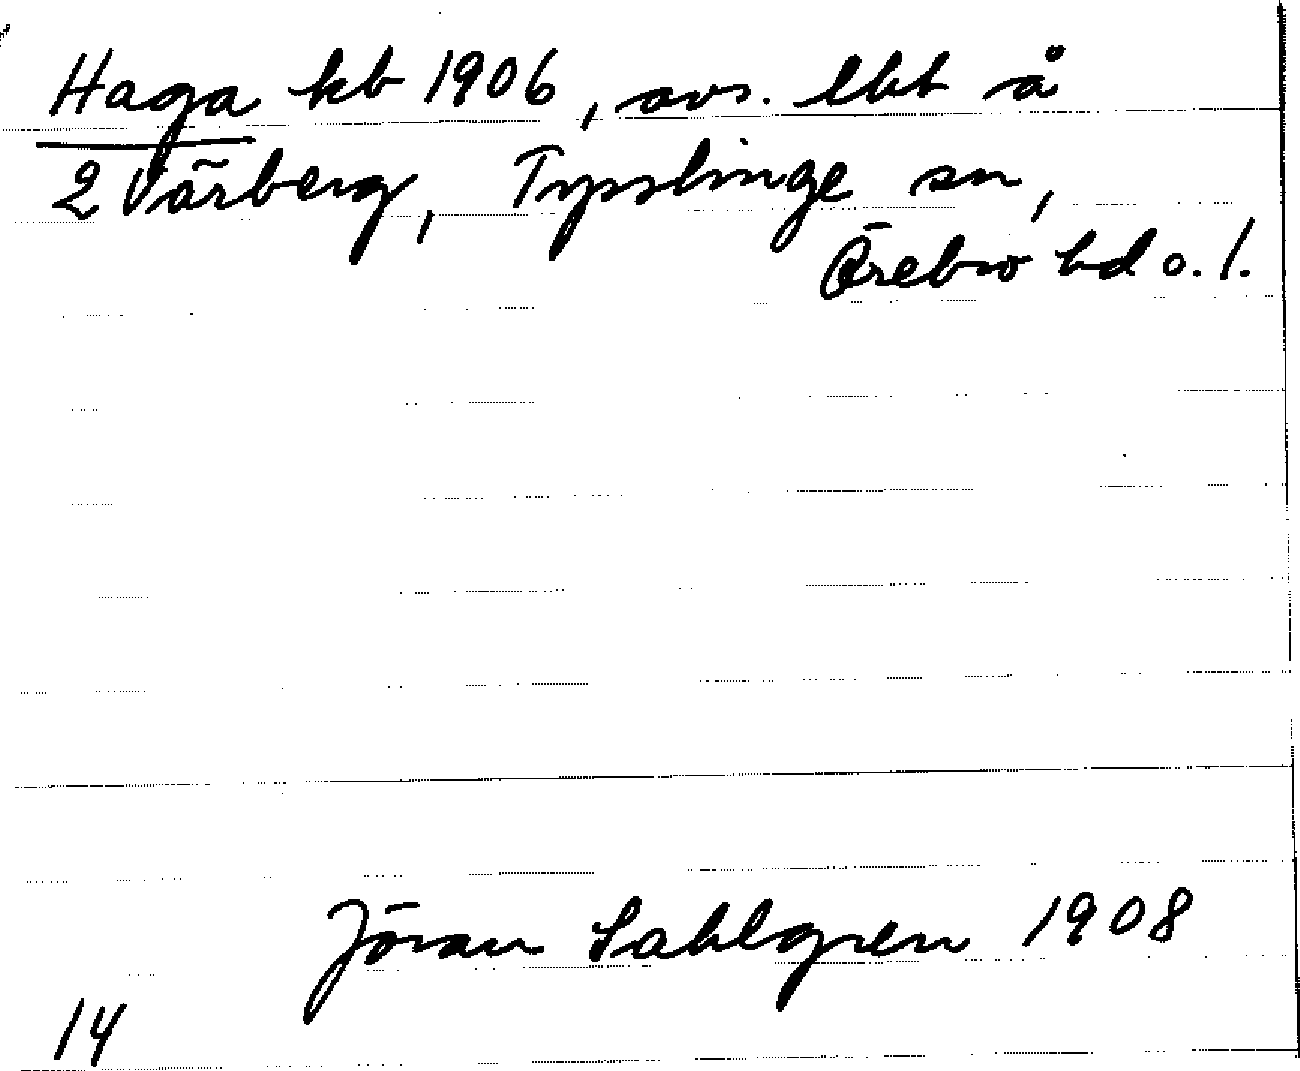 Haga kb 1906, avs. lht å
2 Värberg, Tysslinge sn,
Örebro hd o. l.
Jöran Sahlgren 1908
14